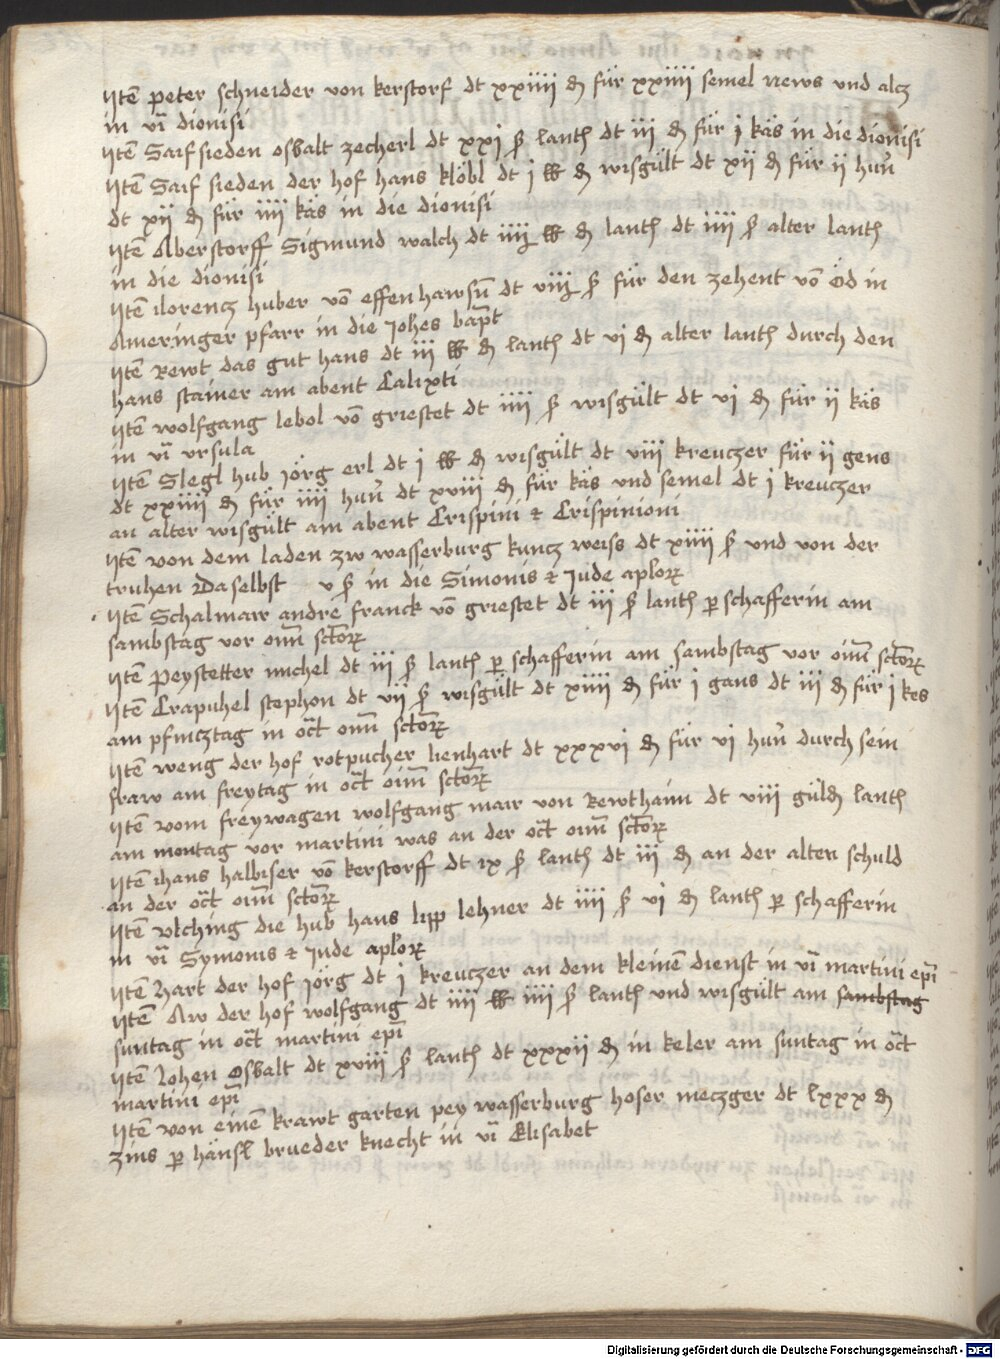 Item peter schneider von kerstorf dt xxiiii ₰ für xxiiii semel news vnd altz
in vi͞ dionisi
Item Saifsieden osbalt zecherl dt xxi ß lanth dt iii ₰ für i käs in die dionisi
Item Saif sieden der hof hans klöbl dt i ℔ ₰ wisgült dt xii ₰ für ii hun̄
dt xii ₰ für iiii käs in die dionisi
Item Alberstorff Sigmund walch dt iiii ℔ ₰ lanth dt iiii ß alter lanth
in die dionisi
Item lorencz huber vo͞ effenhawsn̄ dt viii ß für den zehent vo͞ Öd in
Ameringer pfarr in die Johes bap͞t
Item Rewt das gut hans dt iii ℔ ₰ lanth dt vi ₰ alter lanth durch den
hans stainer am abent Calixti
Item wolfgang lebol vo͞ griestet dt iiii ß wisgült dt vi ₰ für ii käs
in vi͞ vrsula
Item Slegl hub Jörg erl dt i ℔ ₰ wisgült dt viii kreuczer für ii gens
dt xxiiii ₰ für iiii hun̄ dt xviii ₰ für käs vnd semel dt i kreuczer
an alter wisgült am abent Crispini & Crispinioni
Item von dem laden zw wasserburg kuncz weiss dt xiiii ß vnd von der
truhen Daselbst v ß in die Simonis & Jude aplorꝝ
Item Schalmair andre franck vo͞ griestet dt iii ß lanth ꝑ schafferin am
sambstag vor om͞ sctorꝝ
Item Peystetter michel dt iii ß lanth ꝑ schafferin am sambstag vor om͞ sctorꝝ
Item Crapuhel stephon dt vii ß wisgült dt xiiii ₰ für i gans dt iii ₰ für i kes
am pfincztag in oc͞t om͞ sctorꝝ
Item weng der hof rotpucher lienhart dt xxxvi ₰ für vi hun̄ durch sein
fraw am freytag in oc͞t om͞ sctorꝝ
Item vom freywagen wolfgang mair von Rewthaim dt viii güld lanth
am montag vor martini was an der oc͞t om͞ sctorꝝ
Item hans halbiser vo͞ kerstorff dt ix ß lanth dt iii ₰ an der alten schuld
an der oc͞t om͞ sctorꝝ
Item vlching die hub hans lipp lehner dt iiii ß vi ₰ lanth ꝑ schafferin
in vi͞ Symonis & Jude aplorꝝ
Item Hart der hof Jörg dt i kreuczer an dem kleine͞ dienst in vi͞ martini ep͞i
Item Aw der hof wolfgang dt iiii ℔ iiii ß lanth vnd wisgült am sambstag
suntag in oc͞t martini ep͞i
Item Lohen Osbalt dt xviii ß lanth dt xxxii ₰ in keler am suntag in oc͞t
martini ep͞i
Item von eine͞ krawt garten pey wasserburg hoser meczger dt lxxx ₰
zins ꝑ hänsl brueder knecht in vi͞ Elisabet
Digitalisierung gefördert durch die Deutsche Forschungsgemeinschaft - DFG